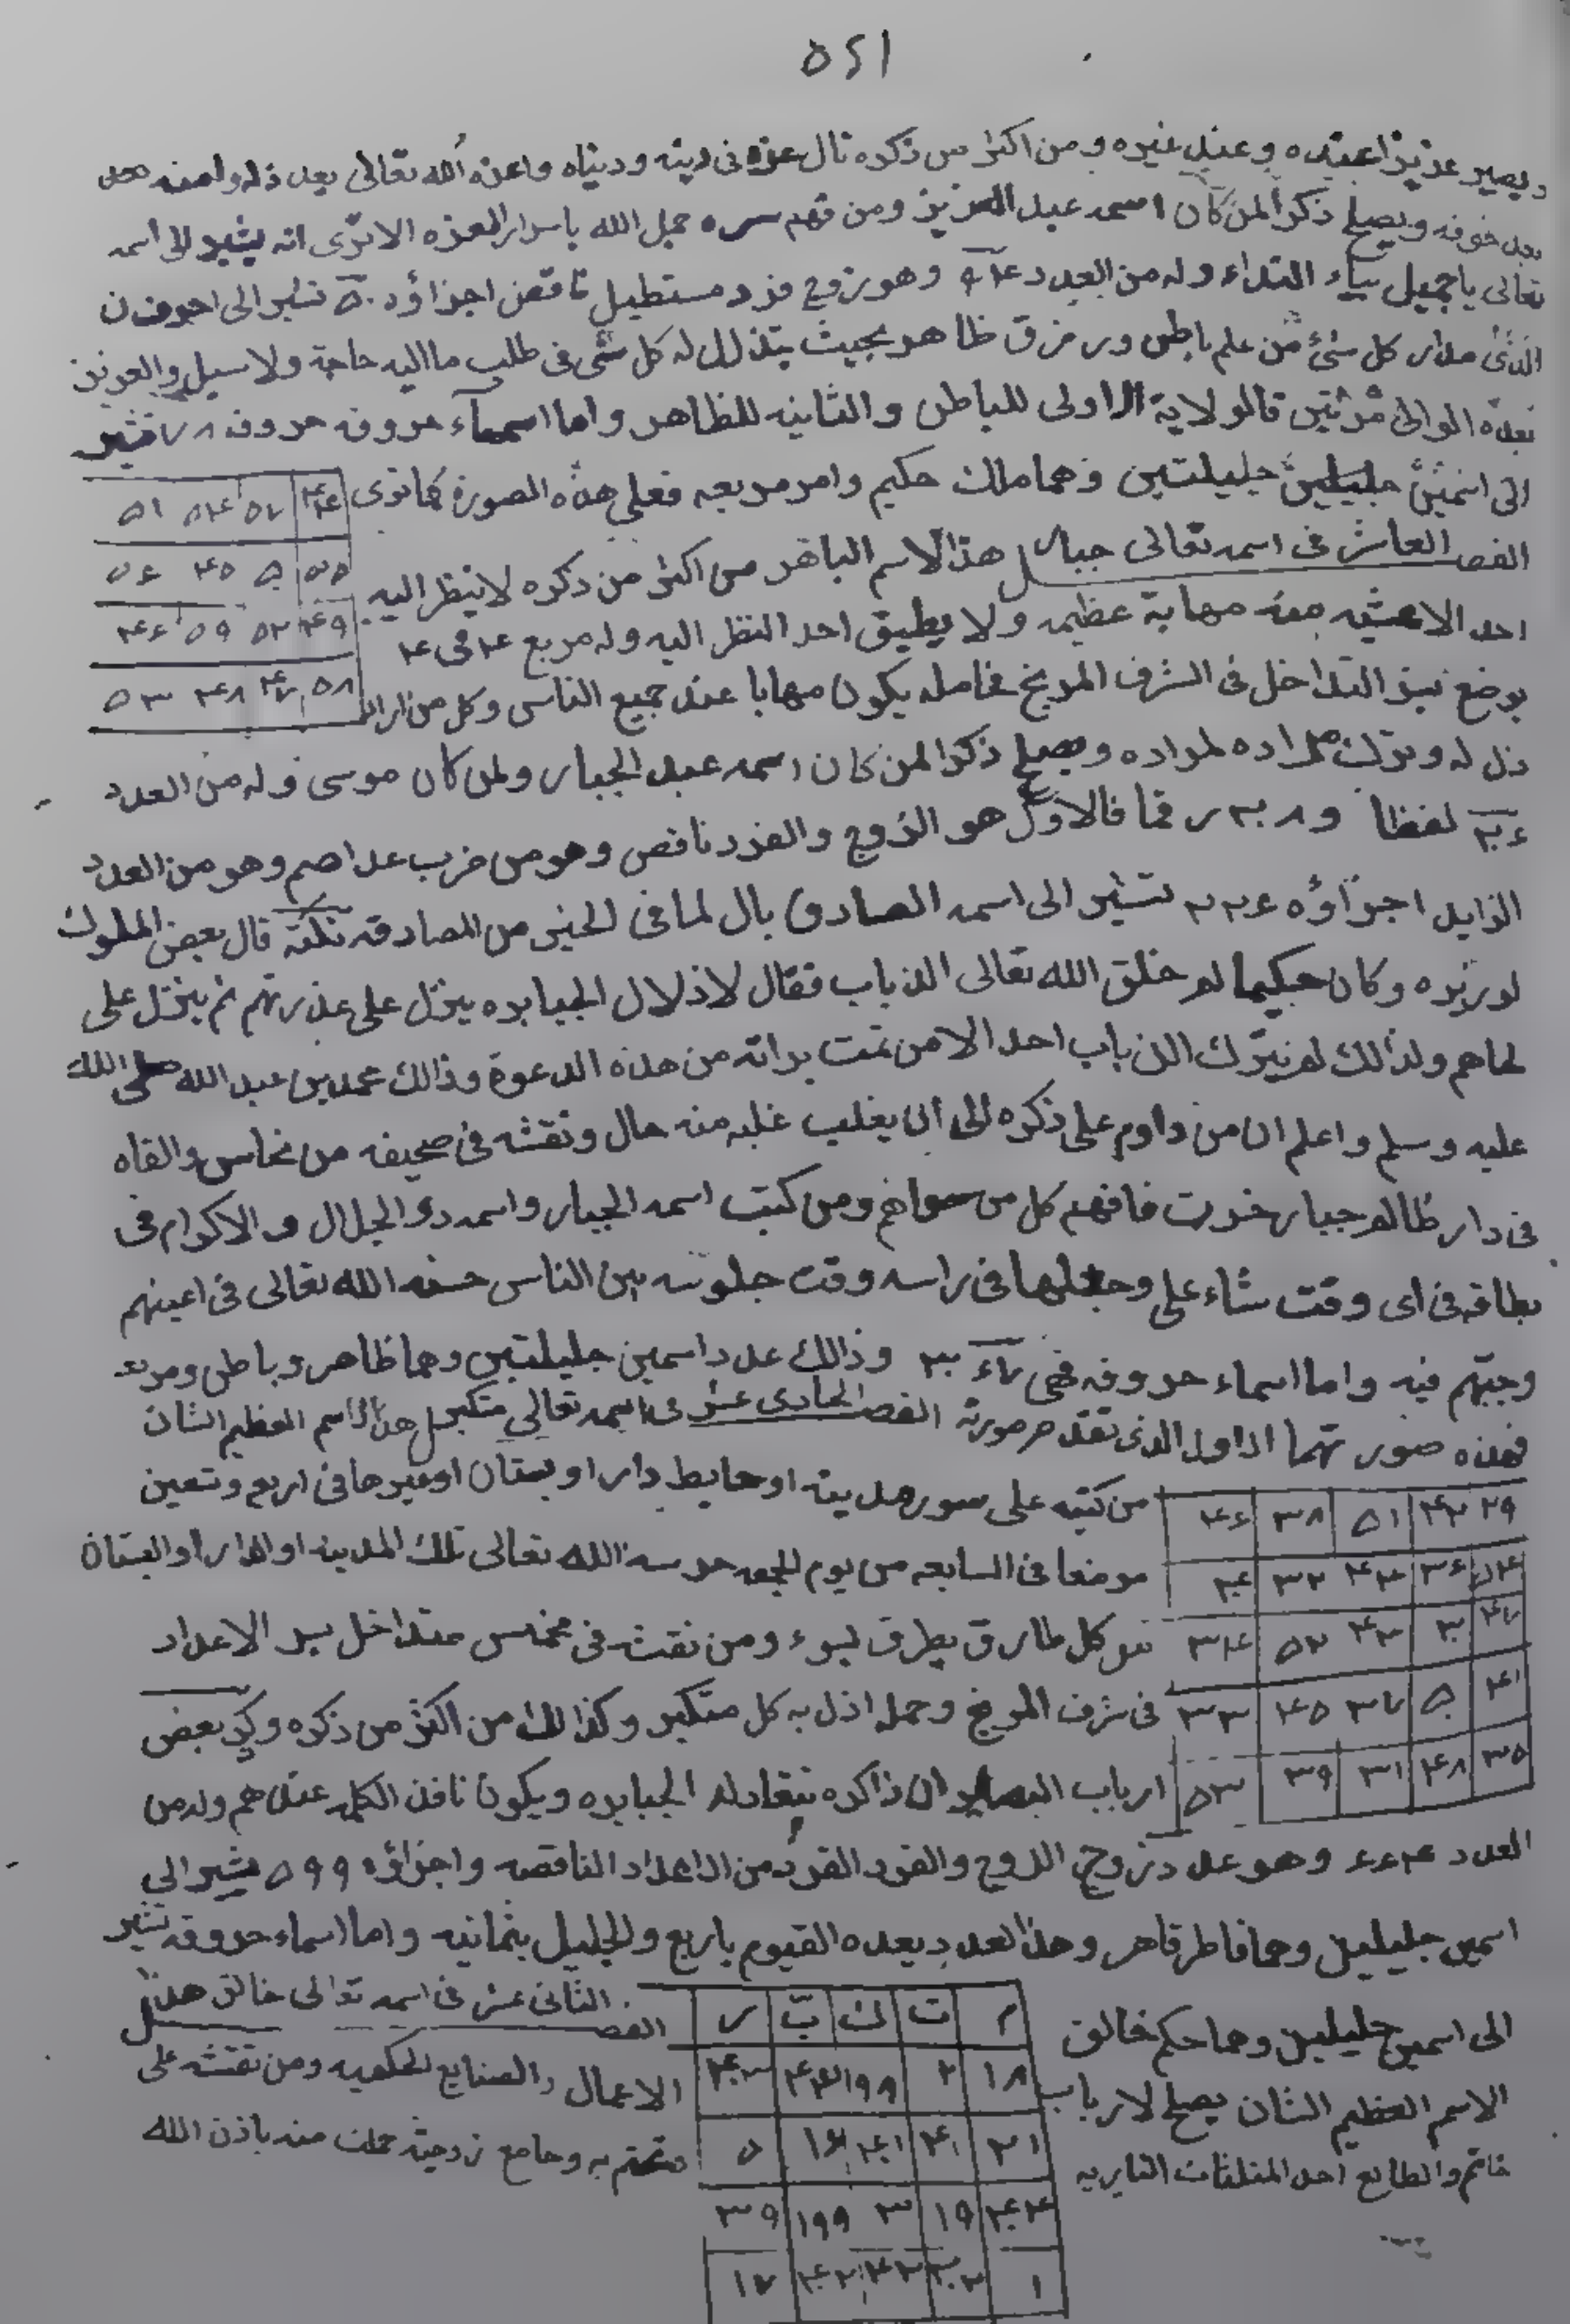 ٥٤١
ويصير عزيزا عنده وعند غيره ومن اكثر من ذكره نال عزه في دينه ودنياه واعزه الله تعالى بعد ذله وامنه
بعد خوفه ويصلح ذكرا لمن كان اسمه عبد العزيز ومن فهم سره حمل الله باسرار العزه الا ترى انه يشير الى اسمه
تعالى يا جميل بياء النداء وله من العدد وهو زوج فرد مستطيل ناقص اجزاؤه ٥٠ تشير الى احرف ن
الذى مدار كل شئ من علم باطن ورزق ظاهر بحيث يتذلل له كل شى فى طلب ما اليه حاجة ولا سبيل والعزيز
بعده الوالى مرتين فالولاية الاولى للباطن والثانيه للظاهر واما اسماء حروفه حروف تشير
الى اسمين جليلين جليلتين وهما ملك حكيم وامر مربعه فعلى هذه الصورة كما ترى
٤٤ ٥٧ ٥٤ ٥١
الفصل العاشر فى اسمه تعالى جبار هذا الاسم الباهر من اكثر من ذكره لا ينظر اليه
٥٥ ٥٠ ٤٥ ٥٦
احد الا عشيه منه مهابة عظيمه ولا يطيق احد النظر اليه وله مربع ٤ فى ٤
٤٩ ٥٢ ٥٩ ٤٦
يوضع بسر التداخل فى الشرف المريخ فحامله يكون مهابا عند جميع الناس وكل من اراد
٥٨ ٤٧ ٤٨ ٥٣
ذل له وترك مراده لمراده ويصلح ذكرا لمن كان اسمه عبد الجبار ولمن كان موسى وله من العدد
٢٠٦ لفظا و ٢٠٨ رقما فالاول هو الزوج والفرد ناقص وهو من ضرب عدد اصم وهو من العدد
الزايد اجزاؤه تشير الى اسمه الصادق بال لما فى الخبر من المصادقه نكتة قال بعض الملوك
لوزيره وكان حكيما لم خلق الله تعالى الذباب فقال لاذلال الجبابره ينزل على عذرتهم ثم ينزل على
لحاهم ولذلك لم يترك الذباب احد الا من تمت براته من هذه الدعوة وذالك محمد بن عبد الله صلى الله
عليه وسلم واعلم ان من داوم على ذكره الى ان يغلب عليه منه حال ونقشه فى صحيفه من نحاس والقاه
فى دار ظالم جبار خربت فافهم كل من ومن كتب اسمه الجبار واسمه ذو الجلال والاكرام فى
بطاقه فى اى وقت شاء على وجعلها فى راسه وقت جلوسه بين الناس حسنه الله تعالى فى اعينهم
وحببهم فيه واما اسماء حروفه فهى وذالك عدد اسمين جليلتين وهما ظاهر وباطن ومربعه
فهذه صورتهما الاول الذى تقدم صورته الفصل الحادى عشر فى اسمه تعالى متكبر هذا الاسم العظيم الشان
من كتبه على سور مدينه او حايط دار او بستان او غيرها فى اربع وتسعين
٢٩ ٤٢ ٥١ ٣٨ ٤٦
موضعا فى السابعه من يوم الجمعه حرسه الله تعالى تلك المدينه او الدار او البستان
٥٤ ٣٦ ٤٤ ٣٢ ٤٠
من كل طارق يطرق بسوء ومن نقشه فى مخمس متداخل بسر الاعداد
٤٧ ٣٠ ٤٣ ٥٢ ٣٤
فى شرف المريخ وحمله اذل به كل متكبر وكذالك من اكثر من ذكره وذكر بعض
٤١ ٥٠ ٣٧ ٤٥ ٣٣
ارباب البصاير ان ذاكره تنقاد له الجبابره ويكون نافذ الكلمه عندهم وله من
٣٥ ٤٨ ٣١ ٣٩ ٥٣
العدد ٦٦٤ وهو عدد زوج الزوج والفرد الفرد من الاعداد الناقصه واجزاؤه ٥٩٩ يشير الى
اسمين جليلين وهما فاطر قاهر وهذا العدد يعده القيوم باربع والجليل بثمانيه واما اسماء حروفه تشير
الى اسمين جليلين وهما حكم خالق
الفصل الثانى عشر فى اسمه تعالى خالق هذا
م ت ك ب ر
الاسم العظيم الشان يصلح لارباب الاعمال والصنايع الحكميه ومن نقشه على
١٨ ٢ ١٩٨ ٤٣ ٤٠٣
خاتم والطالع احد المثلثات الناريه وتختم به وجامع زوجته حملت منه باذن الله
٢١ ٤١ ٤٠١ ١٦ ٥
٤٠٤ ١٩ ٣ ١٩٩ ٣٩
١ ٢٠٢ ٤٢ ٤٠٢ ١٧